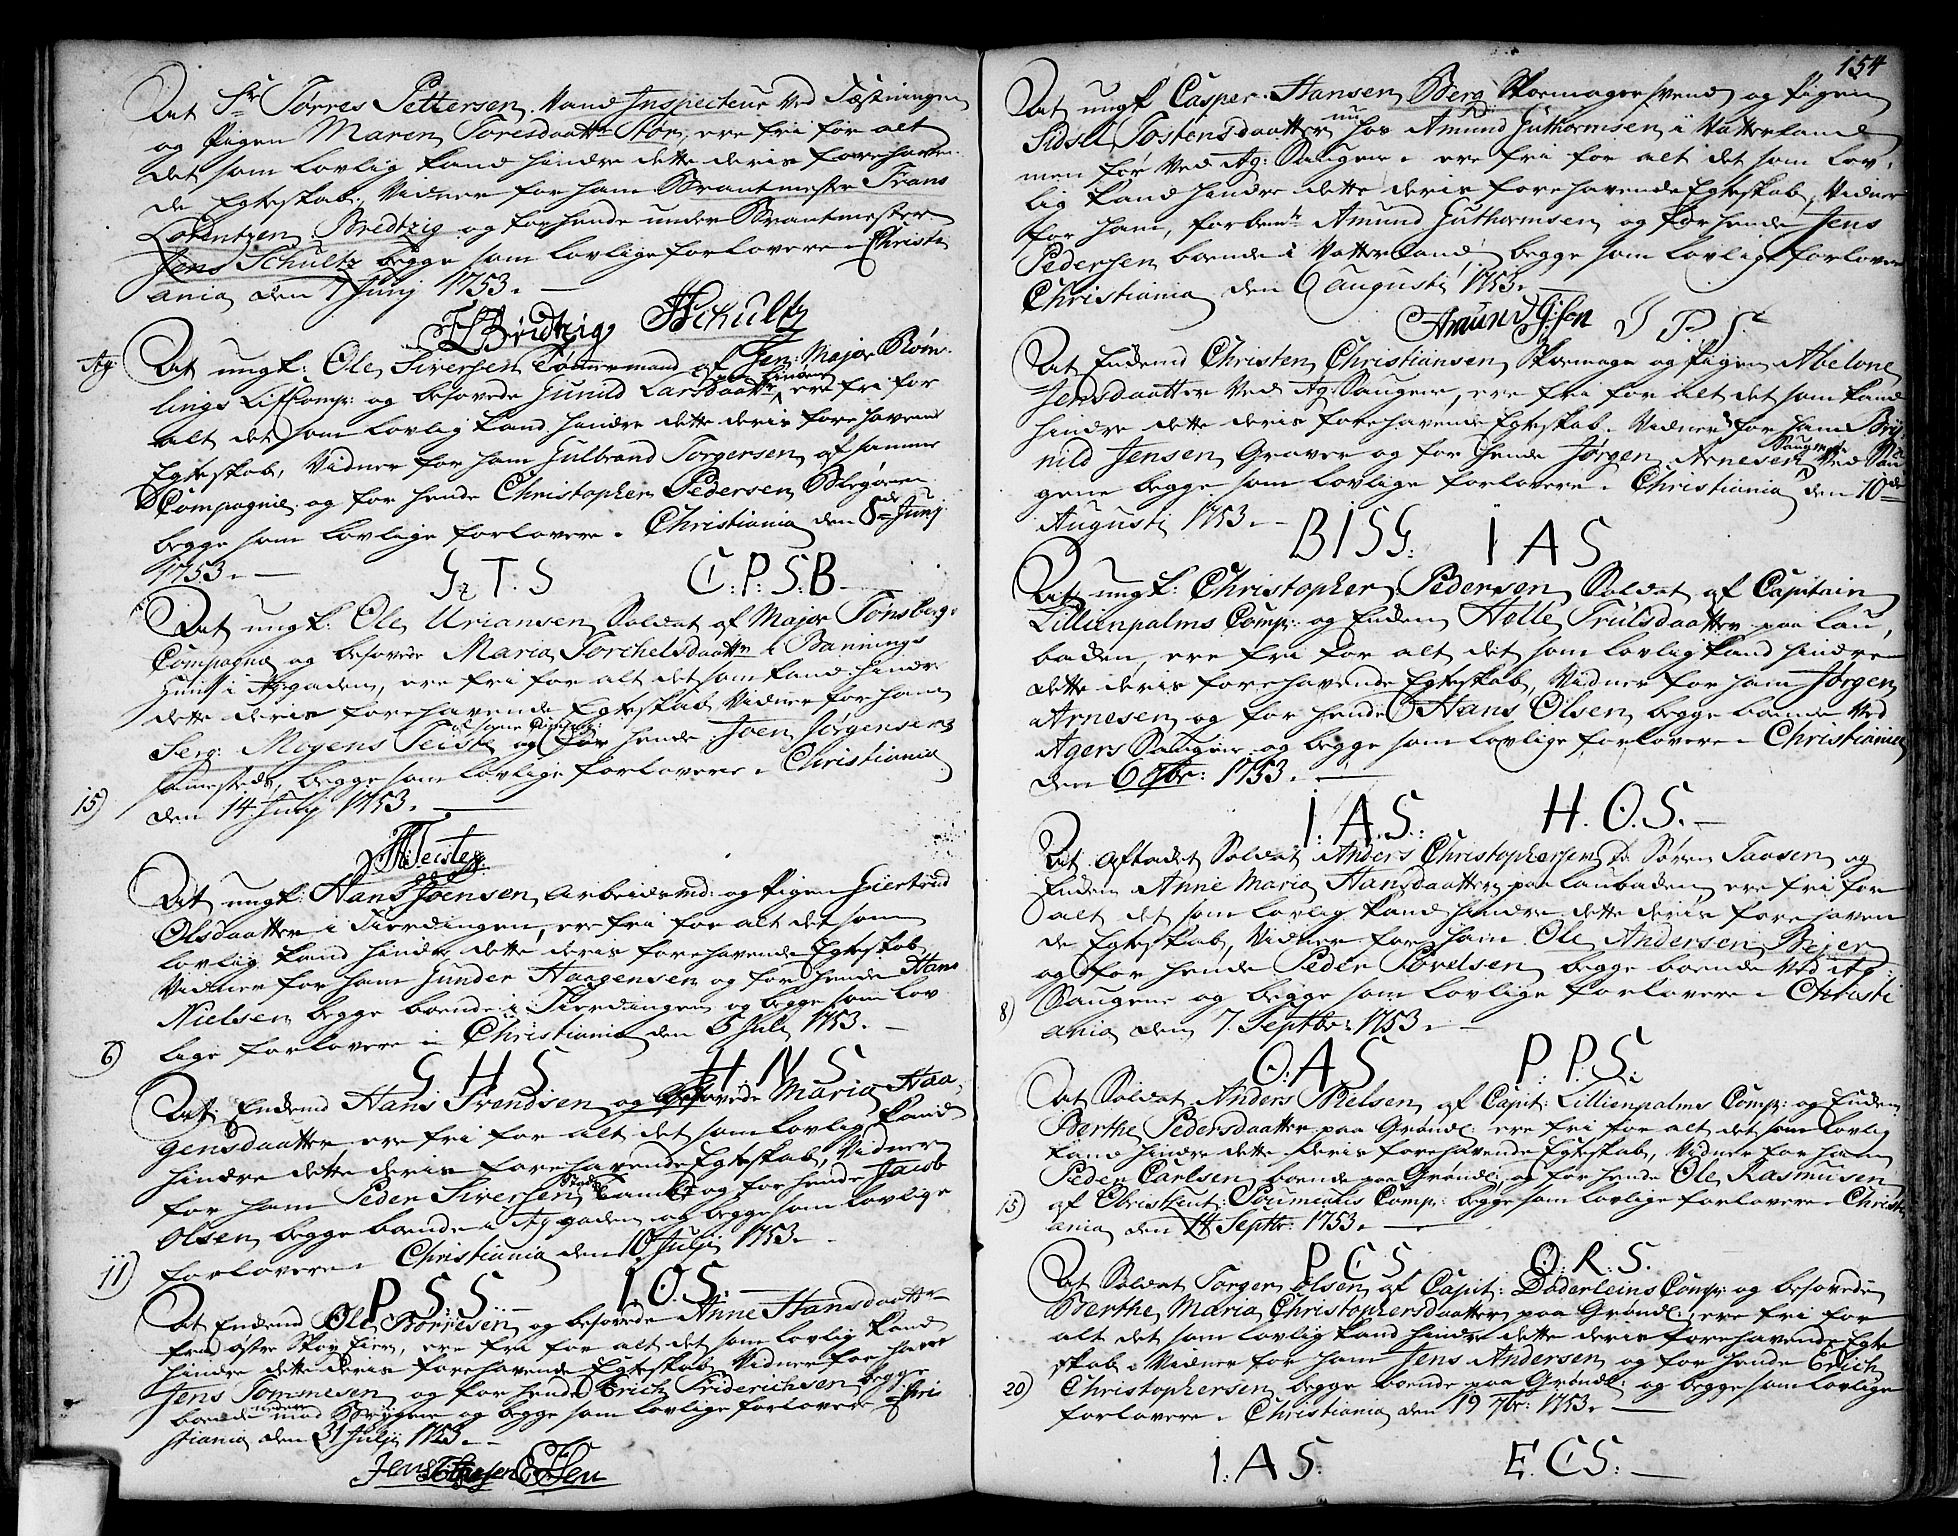 At Sr Tørres Pettersen, Vand Inspecteur Ved Fæstningen
og Pigen Maren Toresdaatter Stør, ere fri for alt
det som lovlig kand hindre dette deris forehaven
de Egteskab, Vidner for ham Brantmester Frans
Lorentzen Bredtzig og for hende under Brantmester
Jens Schultz begge som lovlige forlovere. Christi
ania den 7 Junj 1753.
FLBridtzig JSchultz
Ag: At ungk: Ole Siversen Tømmermand af Gen: Major Røm-
lings Lif Comp: og besovede Gunild Larsdaatter, ere fri for
alt det som lovlig kand hindre dette deris forehavend
Egteskab, Vidner for ham Gulbrand Torgersen, af samme
Compagnie og for hende Christopher Pedersen Blegøen
begge som lovlige forlovere. Christiania den 8de Junj
1753.
G T S C: P: S: B
At ungk: Ole Uriansen Soldat af Major Tønsberg:
Compagnie og besovede Maria Torchelsdaatter i Bannings
Huus i Agergaden, ere fri for alt det som kand hindre
dette deris forehavende Egteskab, Vidner for ham
Serg: Mogens Teiste og for hende Joen Jørgensen
sammesteds, begge som lovlige forlovere. Christiania
15) den 14 Junj 1753.
MTeiste
At ungk: Hans Joensen, Arbeidsmd: og Pigen Giertrud
Olsdaatter i Fierdingen, ere fri for alt det som
lovlig kand hindre dette deris forehavende Egteskab
Vidner for ham Gunder Haagensen og for hende Hans
Nielsen, begge boende i Fierdingen og begge som lov
6) lige forlovere i Christiania den 5 Juli 1753.
G H S H N S
At Enkemd Hans Svendsen og besovede Maria Haa-
gensdaatter, ere fri for alt det som lovlig kand
hindre dette deris forehavende Egteskab, Vidner
for ham Peder Siversen og for hende Jacob
Olsen, begge boende i Ag:gaden, og begge som lovlige
11) forlovere. Christiania den 10 Julji 1753.
P. S: S: I. O S:
At Enkemd Ole Børresen, og besovede Anne Hansdaatter
fred østre Skøyeien, ere fri for alt det som lovlig kand
hindre dette deris forehavende Egteskab, Vidner for ham
Jens Tommesen og for hende Erich Friderichsen, begge
boende neden mod Bryggene og begge som lovlige forlovere Chris
tiania den 31 Julji 1753.
154
At ungk Casper Hansen Berg Skomagersvend og Pigen
Sidsel Tostensdaatter nu hos Amund Guthormsen i Vatterland
men før Ved Ag: Saugene. ere fri for alt det som lov-
lig kand hindre dette deris forehavende Egteskab, Vidner
for ham, forbente Amund Guthormsen, og for hende Jens
Pedersen boende i Vatterland, begge som lovlige forlovere
Christiania den 6 augusti 1753.
Amund G:sen I P. S.
At Enkemd Christen Christiansen Skomager og Pigen Abelone
Jensdaatter Ved Ag: Saugene, ere fri for alt det som kand
hindre dette deris forehavende Egteskab. Vidner for ham Bry
nild Jensen Graver og for hende Jørgen Arnesen Ved Sau
gene begge som lovlige forlovere. Christiania den 10de
Augusti 1753.
B I S G: I A S
At ungk: Christopher Pedersen, Soldat af Capitain
Lillienpalms Comp: og Enken Helle Trulsdaatter paa Lau-
baden, ere fri for alt det som lovlig kand hindre
dette deris forehavende Egteskab, Vidner for ham Jørgen
Arnesen og for hende Hans Olsen, begge boende Ved
Agers Saugene og begge som lovlige forlovere. Christiania
den 6 7br: 1753.
I: A. S: H. O. S.
At Aftaket Soldat Anders Christophersen Sørum Saasen og
Enken Anne Maria Hansdaatter paa Laubaden, ere fri for
alt det som lovlig kand hindre dette deris forehaven
de Egteskab, Vidner for ham Ole Andersen Beier
og for hende Peder Povelsen begge boende Ved Ag:
8) Saugene og begge som lovlige forlovere. Christi
ania den 7 Septbr: 1753.
O: A S P: P. S:
At Soldat Anders Nielsen, af Capit: Lillienpalms Comp: og Enken
Berthe Pedersdaatter paa Grønl: ere fri for alt det som lovlig
kand hindre dette deris forehavende Egteskab, Vidner for ham
Peder Carlsen, boende paa Grønl: og for hende Ole Rasmusen
15) af Obristleut: Comp: begge som lovlige forlovere. Christi
ania den 14 Septbr: 1753.
P C S O: R. S.
At Soldat Torger Olsen af Capit: Doderleins Comp: og besovede
Berthe Maria Christophersdaatter paa Grønl: ere fri for
alt det som lovlig kand hindre dette deris forehavende Egte
skab. Vidner for ham Jens Andersen, og for hende Erich
20) Christophersen begge boende paa Grønl: og begge som lovlige
forlovere. Christiania den 19 7br: 1753.
I: A S: E. C S: